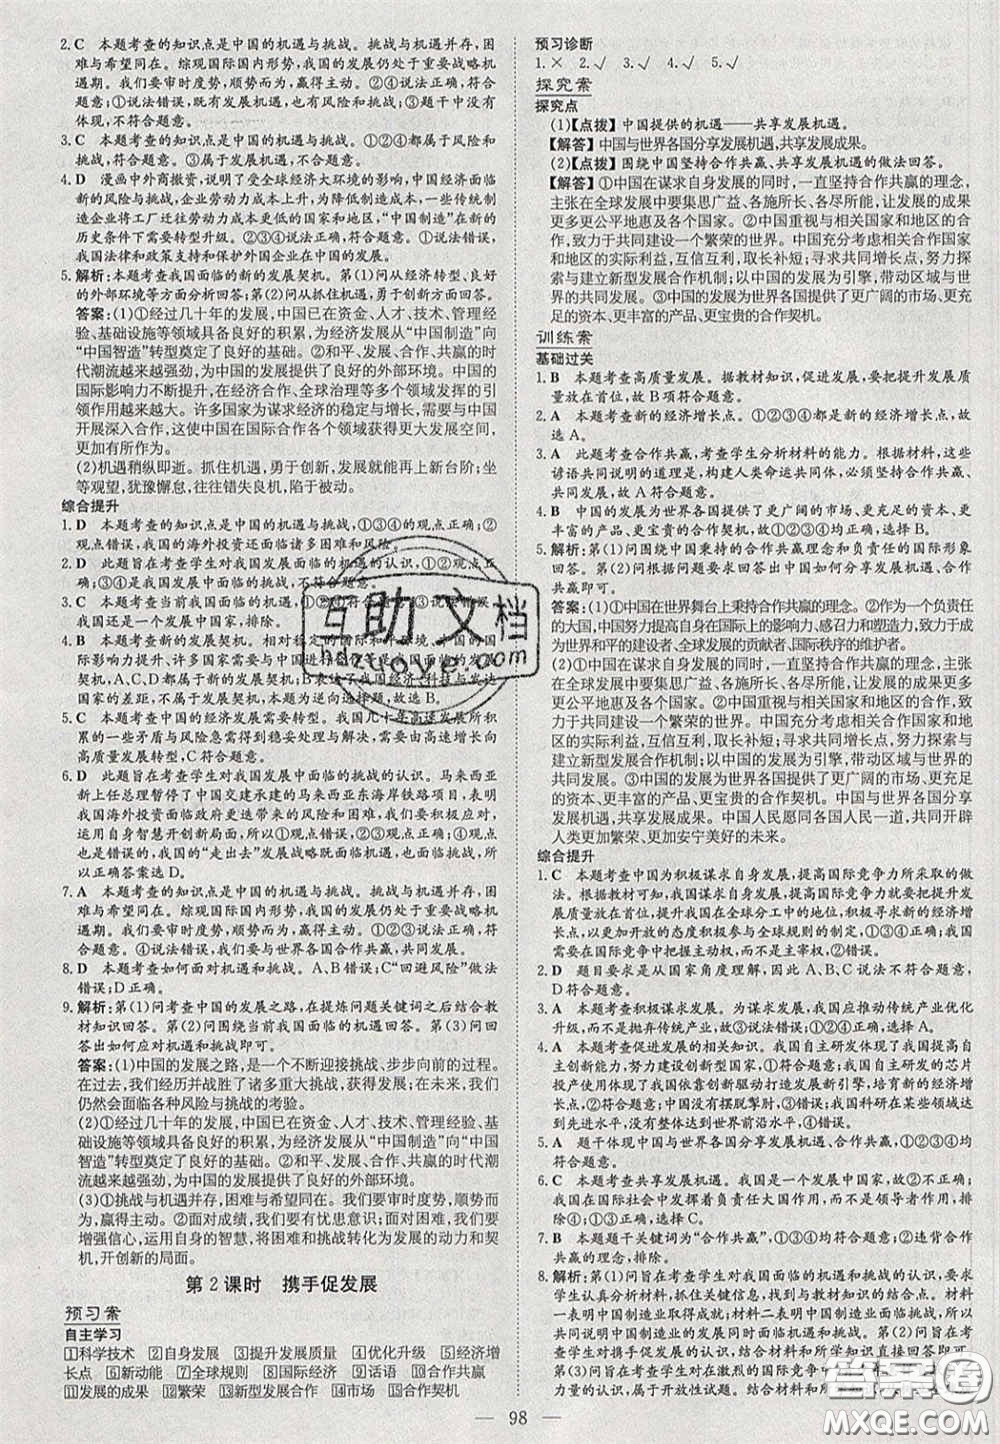 2. C　本题考查的知识点是中国的机遇与挑战。挑战与机遇并存,困
难与希望同在。综观国际国内形势,我国的发展仍处于重要战略机
遇期。我们要审时度势,顺势而为,赢得主动。②④说法正确,符合
题意;①说法错误,既有发展机遇,也有风险和挑战;③题干中没有
体现,不符合题意。
3. C　本题考查的知识点是中国的机遇与挑战。①②④都属于风险和
挑战,符合题意。③属于发展机遇,不符合题意。
4. D　漫画中外商撤资,说明了受全球经济大环境的影响,中国经济面
临新的风险与挑战,企业劳动力成本上升,为保持优势,一些传统制
造企业将工厂迁往劳动力成本更低的国家,“中国制造”在新的
历史条件下需要转型升级。①②③说法正确;④说法错误,我国
法律和政策支持和保护外国企业在华发展。
5. 解析:本题考查我国面临的新的发展契机。第(1)问从经济转型、良好
的外部环境等方面分析回答;第(2)问从抓住机遇,勇于创新作答。
答案:(1)①经过几十年的发展,中国已在资金、人才、技术、管理
经验、基础设施等领域具备良好的积累,为经济发展从“中国制造”向
“中国智造”转型奠定了良好的基础。②和平、发展、合作、共赢的时
代潮流越来越强劲,为中国的发展提供了良好的外部环境。中国的
国际影响力不断提升,在经济合作、全球治理等多个领域发挥的引
领作用越来越大。许多国家为谋求经济的稳定与增长,需要与中国
开展深入合作,这使中国在国际合作各个领域获得更大发展空间,更
有所作为。
(2)机遇稍纵即逝。抓住机遇,勇于创新,发展就能跃上新台阶;坐
等观望,犹豫懈怠,往往错失良机,陷于被动。
综合提升
1. D　本题考查的知识点是中国的机遇与挑战,①③④的观点正确;②
观点错误,我国的海外投资还面临诸多困难和风险。
2. D　此题旨在考查学生对我国发展面临的机遇的认识,①②观点正
确;③④是我国发展中面临的挑战,不合题意。
3. C　本题考查当前我国面临的机遇和挑战。①②④正确;③说法错误,
我国是发展中国家,排除。
4. B　本题考查新的发展契机。稳定的国际和平环境、我国的国
际影响力提升、许多国家需要与中国进行深入合作等是新的发展
契机,A、C、D都是我国的发展契机;B体现了我国经济与发达
国家的差距,不属于发展契机。本题为逆向选择题,故选B。
5. C　本题考查中国的经济发展需要转型。我国几十年高速发展所积
累的一些矛盾与风险急需得到稳妥处理与解决,需要由高速增长向
高质量发展转型,C符合题意。
6. D　此题旨在考查学生对我国发展中面临的挑战的认识。马来西亚
新上任总理暂停了中国交建承建的马来西亚东海岸铁路项目,表明
我国海外投资面临政府更迭带来的风险和挑战,我们要积极应对,
运用自身智慧开创新的局面,所以①观点错误,②③观点正确;④观
点错误,我国的“走出去”发展战略既面临机遇,也面临挑战,所
以正确答案选D。
7. A　本题考查的知识点是中国的机遇与挑战。挑战与机遇并存,困
难与希望同在。综观国际国内形势,我国的发展仍处于重要战略机
遇期。我们要审时度势,顺势而为,赢得主动。①②③说法正确,符
合题意。④说法错误,我们要与世界各国合作共赢,共同发展。
8. D　本题考查如何面对机遇和挑战。A、B错误;C“回避风险”做法
错误;D做法正确。
9. 解析:第(1)问考查中国的发展之路,在提炼问题关键词之后结合教
材知识回答。第(2)问围绕当前我国面临的机遇回答。第(3)问回
答出如何应对机遇和挑战即可。
答案:(1)中国的发展之路,是一个不断迎接挑战、步步向前的过程。
在过去,我们经历并战胜了诸多重大挑战,获得了发展;在未来,我们
仍然会面临各种风险与挑战的考验。
(2)①经过几十年的发展,中国已在资金、人才、技术、管理经验、基
础设施等领域具备良好的积累,为经济发展从“中国制造”向“中国
智造”转型奠定了良好的基础。②和平、发展、合作、共赢的时代潮
流越来越强劲,为中国的发展提供了良好的外部环境。
(3)①挑战与机遇并存,困难与希望同在。我们要审时度势,顺势而
为,赢得主动。②面对成绩,我们要有忧患意识;面对困难,我们要
增强信心,运用自身的智慧,将困难和挑战转化为发展的动力和契
机,开创新的局面。
第 2 课时　携手促发展
预习案
自主学习
1科学技术　2自身发展　3提升发展质量　4优化升级　5经济增
长点　6新动能　7全球规则　8国际经济　9话语　10合作共赢
11发展的成果　12繁荣　13新型发展合作　14市场　15合作契机
预习诊断
1. ×　2. √　3. √　4. √　5. √
探究案
探究点
(1)【点拨】中国提供的机遇——共享发展机遇。
【解答】中国与世界各国分享发展机遇,共享发展成果。
(2)【点拨】围绕中国坚持合作共赢、共享发展机遇的做法回答。
【解答】①中国在谋求自身发展的同时,一直坚持合作共赢的理念,
主张在全球发展中要集思广益、各施所长、各尽所能,让发展的成果
更多更公平地惠及各个国家。②中国重视与相关国家和地区的合
作,致力于共同建设一个繁荣的世界。中国充分考虑相关合作国家
和地区的实际利益,互信互利,取长补短;寻求共同增长,积极探索
与建立新型发展合作机制;以中国的发展为引擎,带动区域与世界
的共同发展。③中国的发展为世界各国提供了更广阔的市场、更充
足的资本、更丰富的产品、更宝贵的合作契机。
训练案
基础过关
1. B　本题考查高质量发展。据教材知识,促进发展,要把提升发展质
量放在首位,故B项符合题意。
2. A　本题考查新的经济增长点。①②③④都是新的经济增长点,故
选A。
3. A　此题考查合作共赢,考查学生分析材料的能力。材料中,这些
谚语共同说明的道理是,构建人类命运共同体,必须坚持合作共赢、
共同发展,故A符合题意。
4. B　中国的发展为世界各国提供了更广阔的市场、更充足的资本、更
丰富的产品、更宝贵的合作契机。故①③④正确,选择B。
5. 解析:第(1)问围绕中国秉持的合作共赢理念和负责任的国际形象
回答。第(2)问根据问题要求回答出中国如何分享发展机遇、合作
共赢即可。
答案:(1)①中国在世界舞台上秉持合作共赢的理念。②作为一个负责任
的大国,中国努力提高自身在国际上的影响力、感召力和塑造力,致力于成
为世界和平的建设者、全球发展的贡献者、国际秩序的维护者。
(2)①中国在谋求自身发展的同时,一直坚持合作共赢的理念,主张
在全球发展中要集思广益、各施所长、各尽所能,让发展的成果更多
更公平地惠及各个国家。②中国重视与相关国家和地区的合作,致
力于共同建设一个繁荣的世界。中国充分考虑相关合作国家和地
区的实际利益,互信互利,取长补短;寻求共同增长,积极探索与建
立新型发展合作机制;以中国的发展为引擎,带动区域与世界的共
同发展。③中国的发展为世界各国提供了更广阔的市场、更充足
的资本、更丰富的产品、更宝贵的合作契机。中国与世界各国分享
发展机遇,共享发展成果。中国人民愿同各国人民一道,共同开辟
人类更加繁荣、更加安宁美好的未来。
综合提升
1. C　本题考查中国为积极谋求自身发展,提高国际竞争力所采取的做
法。根据教材可知,我国谋求自身发展,提高国际竞争力就要把提升
发展质量放在首位,提升我国在全球分工中的地位,积极寻求新的经
济增长点,以更加开放的态度积极参与全球规则的制定,①③④正确;
我国在国际竞争中把握主动,而不是主宰权,②错误。
2. D　题目要求是从国家角度理解。因此A、B、C三项都不符合题意。
D符合题意。
3. C　本题考查积极谋求发展。为谋求发展,我国应推动传统产业优化
升级,而不是抛弃传统产业,故③说法错误;①②④说法正确。
4. C　本题考查促进发展的相关知识。我国自主研发体现了我国坚持
自主创新,努力构建新的竞争优势,①符合题意。我国自主研发的芯片
投产使用体现了我国依靠创新驱动打造发展新引擎,培育新的经济
增长点,②符合题意。中国没有摆脱掣肘,③错误。我国科研在某些领域
达到先进水平,没有整体达到世界前沿水平,④错误。
5. A　题干体现中国与世界各国分享发展机遇、合作共赢。
6. C　本题考查共享发展机遇。我国是一个发展中国家,故②错误。
我国在国际社会中发挥着负责任大国作用,而不是领导者作用,排
除④;①③说法正确,故选择C。
7. B　本题题干关键词为“合作共赢”,①④与题意不符;②③符合合作
共赢的理念,排除。
8. 解析:第(1)问旨在考查学生对我国面临的机遇和挑战的认识,
学生认真分析材料,抓住关键信息,找到与教材知识的结合点。材料
一表明中国制造业取得了发展;材料二表明中国制造业面临挑战,故
材料表明中国制造业面临机遇与挑战。第(2)问旨在考查学生
对携手促发展的认识。
旨在考查学生在激烈的国际竞争
力量的做法,属于开放性试题。结合材料
98
互助文档
hdzuoye.com
答案圈
MXQE.COM